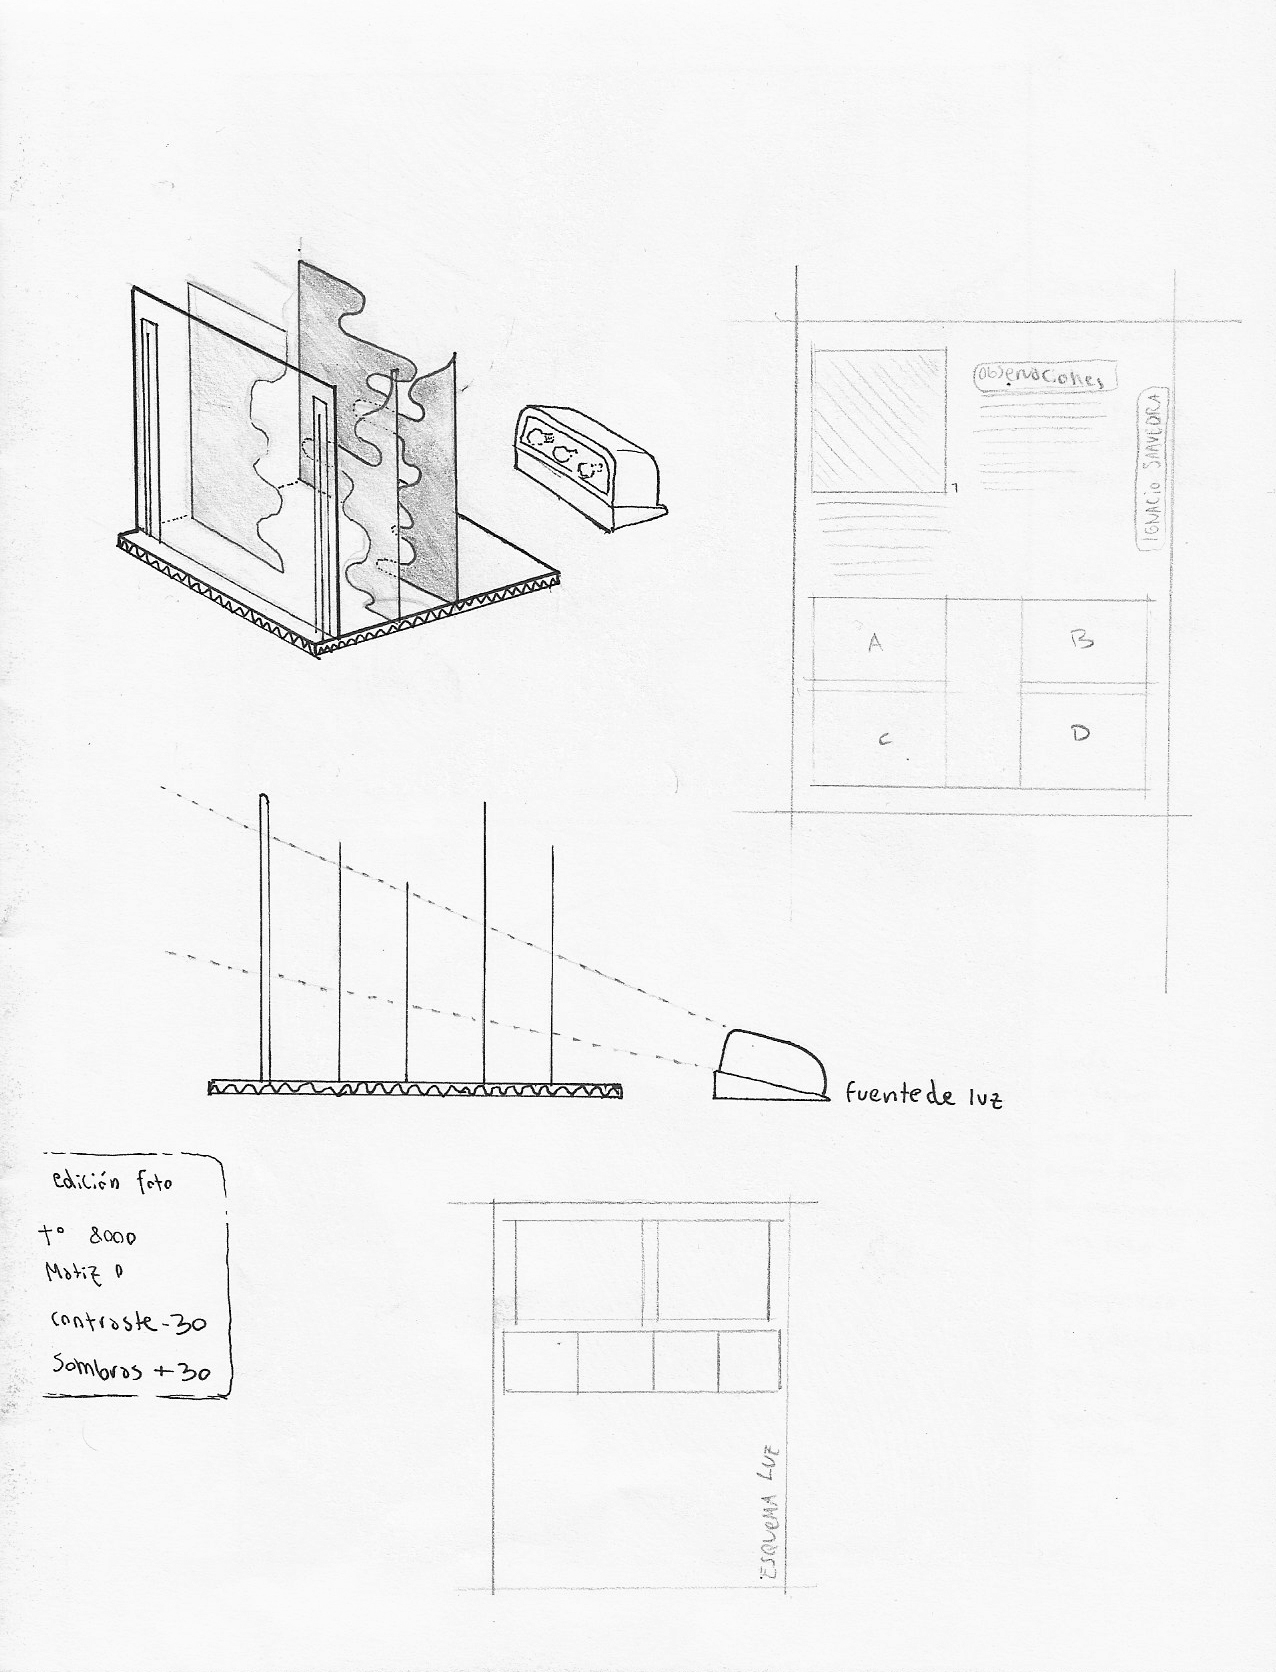 Observaciones
IGNACIO SAAVEDRA
A
B
C
D
fuente de luz
edición foto
t° 8000
Matiz 0
contraste -30
Sombras +30
ESQUEMA LUZ